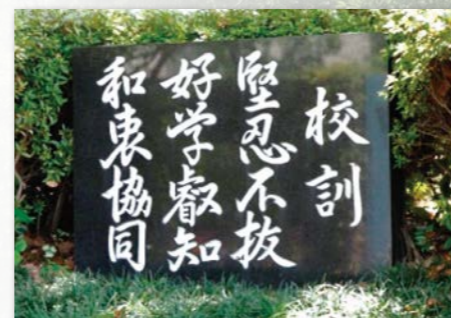 校訓
堅忍不抜
好学叡知
和衷協同